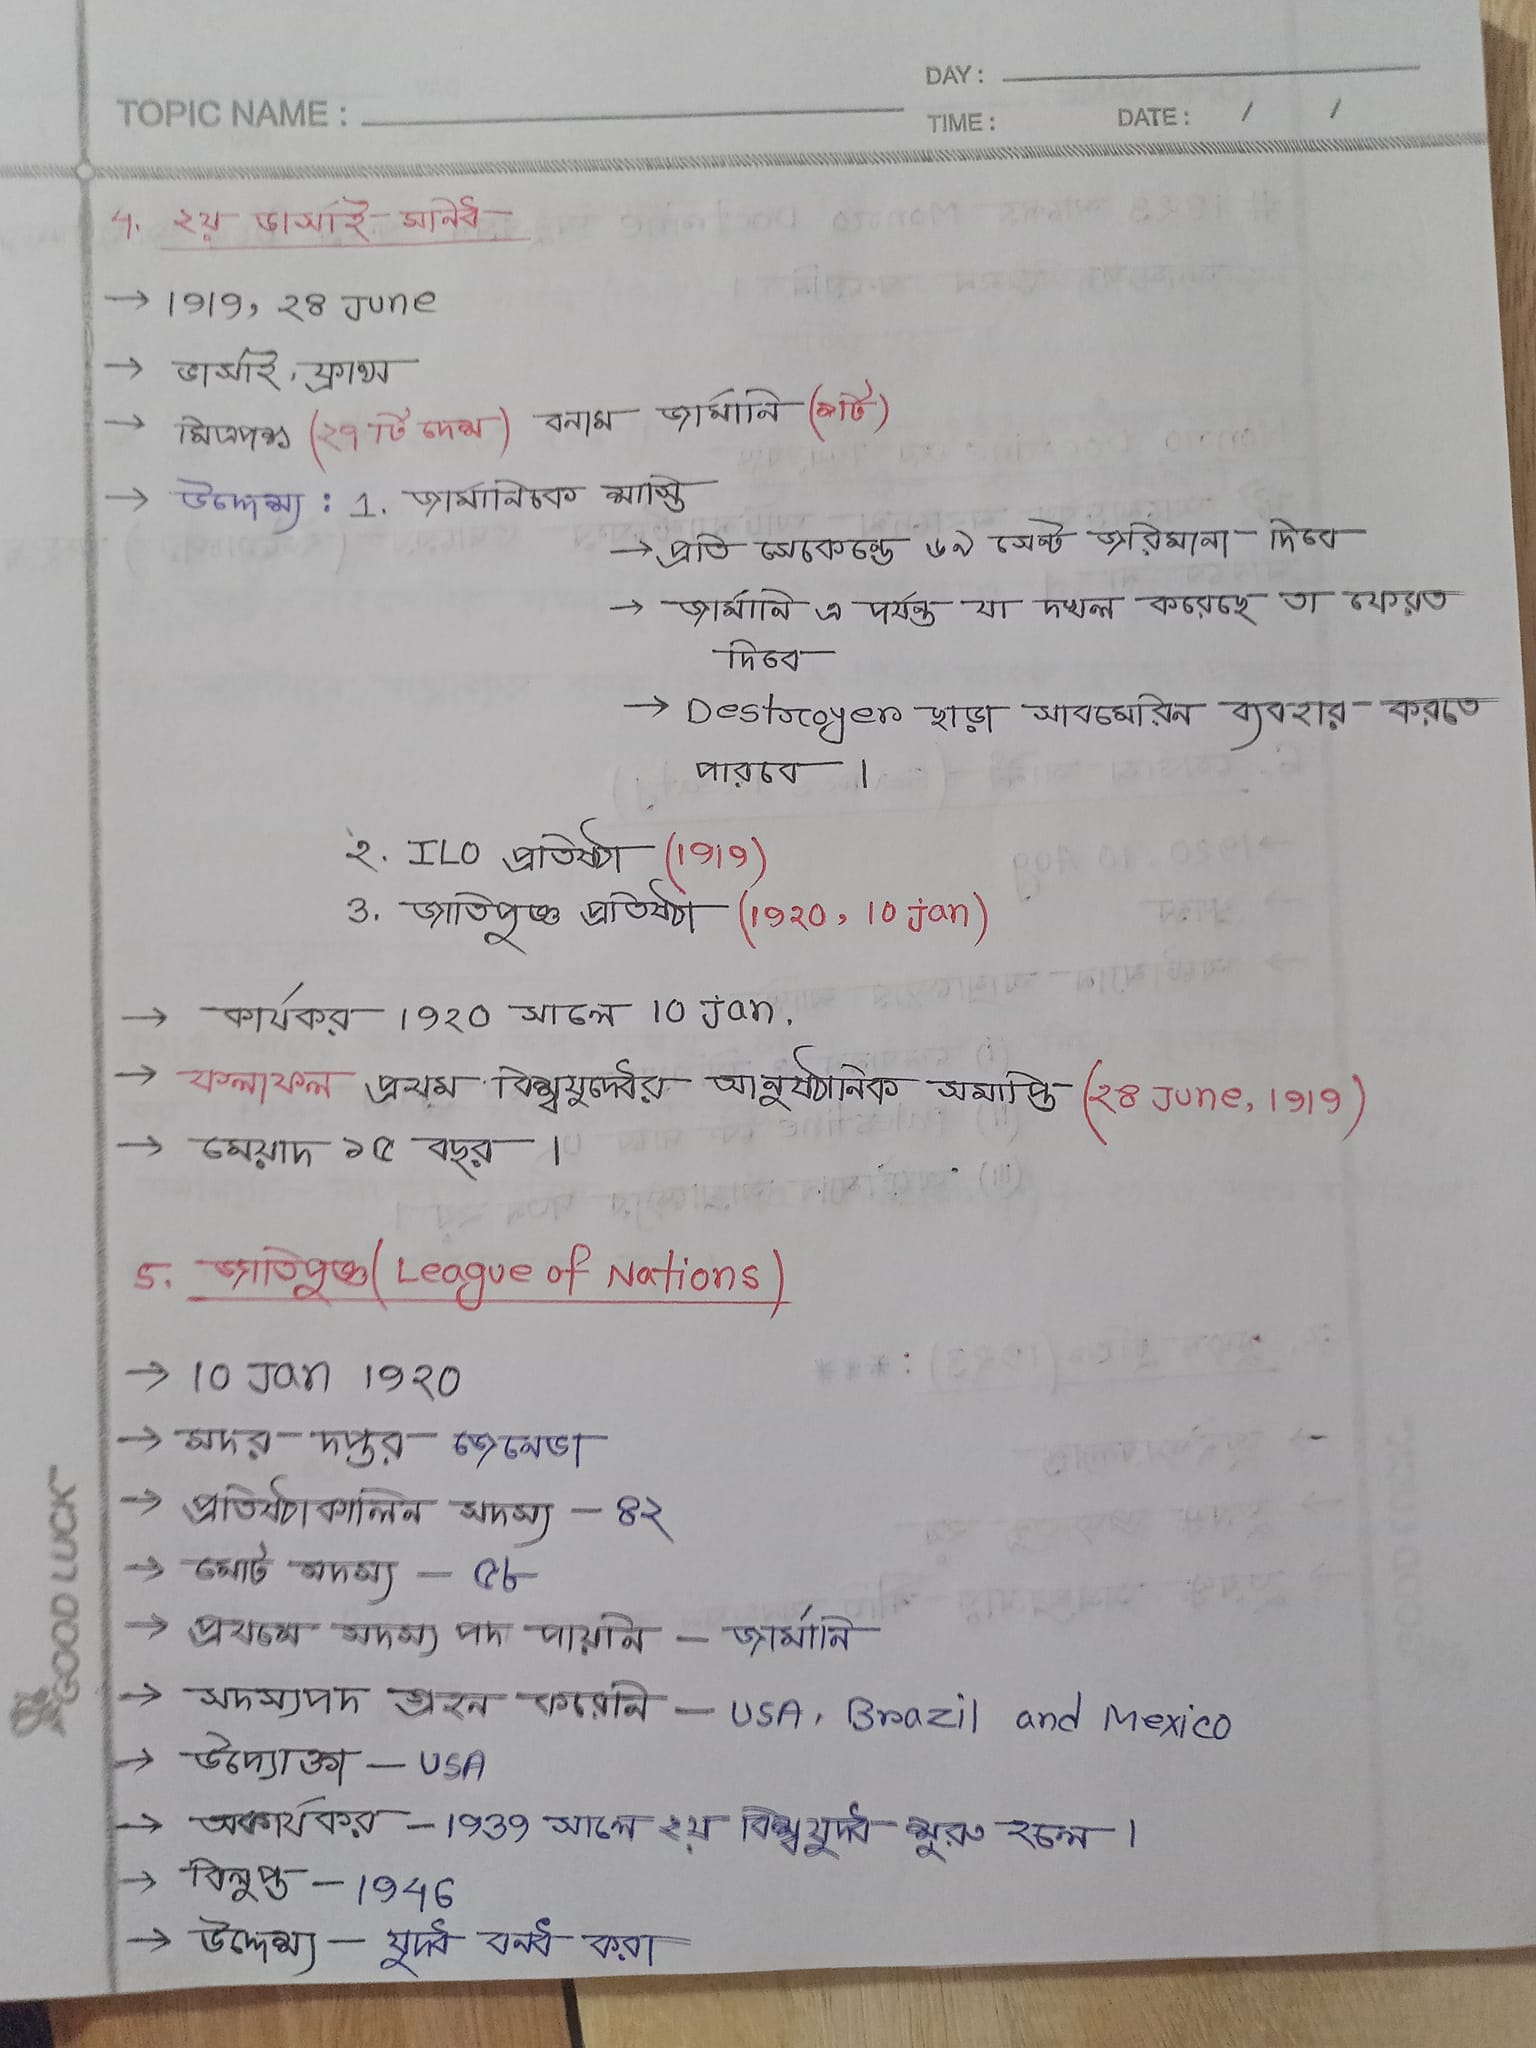 DAY :
TOPIC NAME :
TIME :
DATE : / /
4. ২য় ভার্সাই সন্ধি
→ 1919, 28 June
→ ভার্সাই, ফ্রান্স
→ মিত্রপক্ষ (২৭ টি দেশ) বনাম জার্মানি
→ উদ্দেশ্য : 1. জার্মানিকে শাস্তি
→ প্রতি সেকেন্ডে ৬৯ সেন্ট জরিমানা দিবে
→ জার্মানি এ পর্যন্ত যা দখল করেছে তা ফেরত
দিবে
→ Destroyer ছাড়া সাবমেরিন ব্যবহার করতে
পারবে ।
২. ILO প্রতিষ্ঠা (1919)
3. জাতিপুঞ্জ প্রতিষ্ঠা (1920, 10 jan)
→ কার্যকর 1920 সালে 10 jan.
→ ফলাফল প্রথম বিশ্বযুদ্ধের আনুষ্ঠানিক সমাপ্তি (28 June, 1919)
→ মেয়াদ ১৫ বছর ।
5. জাতিপুঞ্জ (League of Nations)
→ 10 Jan 1920
→ সদর দপ্তর জেনেভা
→ প্রতিষ্ঠাকালিন সদস্য – ৪২
→ মোট সদস্য – ৫৮
→ প্রথমে সদস্য পদ পায়নি – জার্মানি
→ সদস্যপদ গ্রহন করেনি – USA, Brazil and Mexico
→ উদ্যোক্তা – USA
→ অকার্যকর – 1939 সালে ২য় বিশ্বযুদ্ধ শুরু হলে ।
→ বিলুপ্ত – 1946
→ উদ্দেশ্য – যুদ্ধ বন্ধ করা
GOOD LUCK